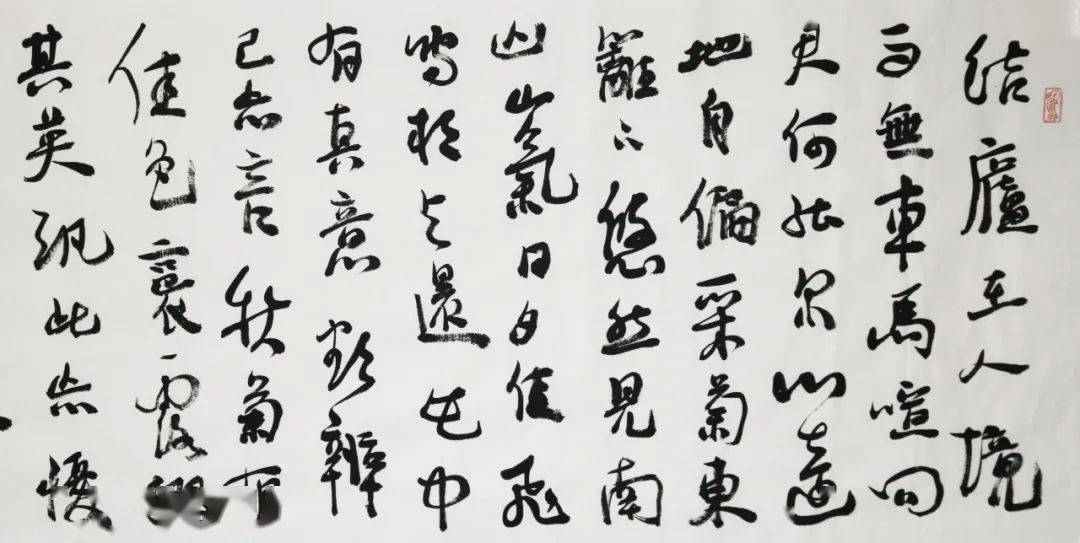 結廬在人境
而無車馬喧問
君何能爾心遠
地自偏采菊東
籬下悠然見南
山山氣日夕佳飛
鳥相與還此中
有真意欲辨
已忘言秋菊有
佳色裛露
其英汎此忘憂